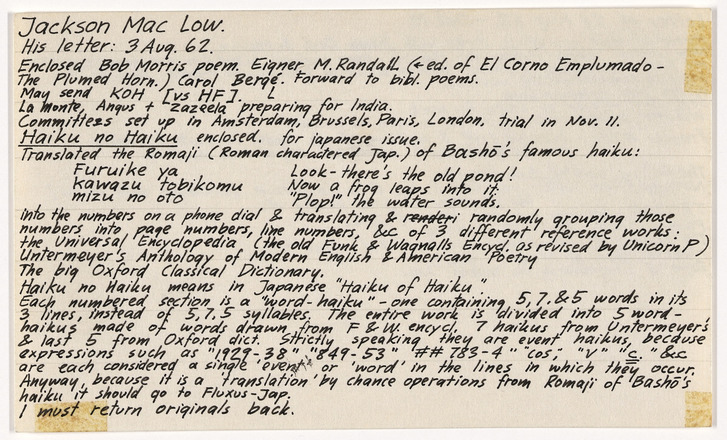 Jackson Mac Low.
His letter: 3 Aug. 62.
Enclosed Bob Morris poem. Eigner M. Randall (← ed. of El Corno Emplumado –
The Plumed Horn.) Carol Bergé. Forward to bibl. poems.
May send KOH [vs HF]. L
La Monte, Angus + Zazeela preparing for India.
Committees set up in Amsterdam, Brussels, Paris, London. trial in Nov. 11.
Haiku no Haiku enclosed. for japanese issue.
Translated the Romaji (Roman charactered Jap.) of Bashō's famous haiku:
Furuike ya Look – there's the old pond!
kawazu tobikomu Now a frog leaps into it.
mizu no oto "Plop!" the water sounds.
into the numbers on a phone dial & translating & renderi randomly grouping those
numbers into, page numbers, line numbers, &c of 3 different reference works:
the Universal Encyclopedia (the old Funk & Wagnalls Encycl. as revised by Unicorn P)
Untermeyer's Anthology of Modern English & American Poetry
The big Oxford Classical Dictionary.
Haiku no Haiku means in Japanese "Haiku of Haiku".
Each numbered section is a "word-haiku" – one containing 5, 7, & 5 words in its
3 lines, instead of 5, 7, 5 syllables. The entire work is divided into 5 word-
haikus made of words drawn from F & W. encycl. 7 haikus from Untermeyer's
& last 5 from Oxford dict. Strictly speaking they are event haikus, because
expressions such as "1929-38" "849-53" "## 783-4" "cos," "v" "c." &c
are each considered a single 'event' or 'word' in the lines in which they occur.
Anyway, because it is a translation by chance operations from Romaji of Bashō's
haiku it should go to Fluxus-Jap.
I must return originals back.